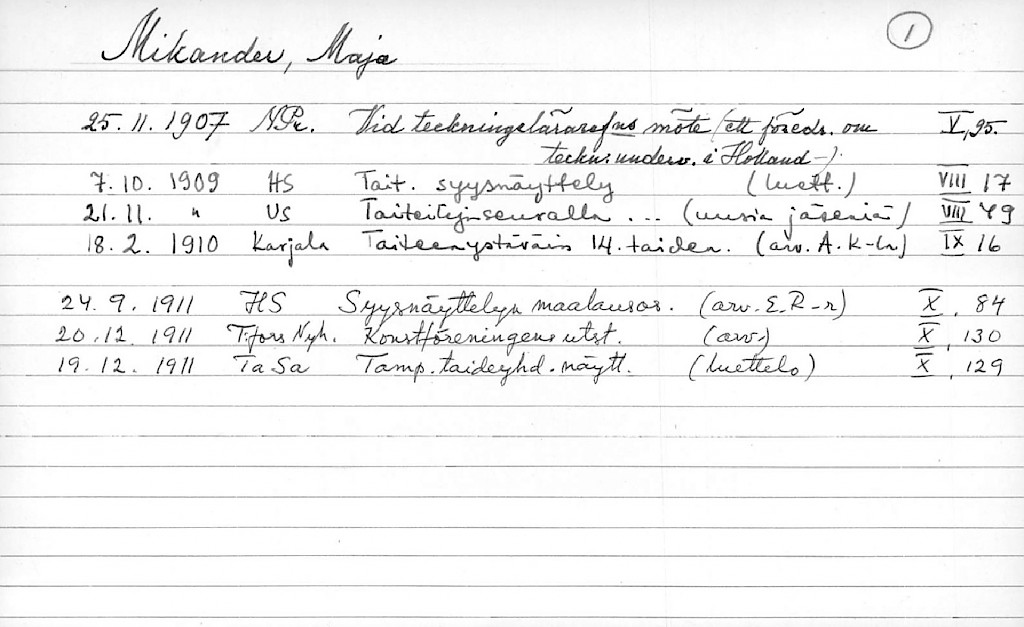 1
Mikander, Maja
25.11.1907 NPr. Vid teckningslärarefns möte (ett föredr. om V, 95.
teckn. underv. i Holland-).
7.10. 1909 HS Tait. syysnäyttely (luett.) VIII 17
21.11. " US Taiteilijaseuralla ... (uusia jäseniä) VIII 49
18.2. 1910 Karjala Taiteenystäväin 14. taiden. (arv. A. K-la) IX 16
24.9.1911 HS Syysnäyttelyn maalausos. (arv. E. R-n) X, 84
20.12.1911 T:fors Nyh. Konstföreningens utst. (arv.) X, 130
19.12.1911 TaSa Tamp. taideyhd. näytt. (luettelo) X, 129